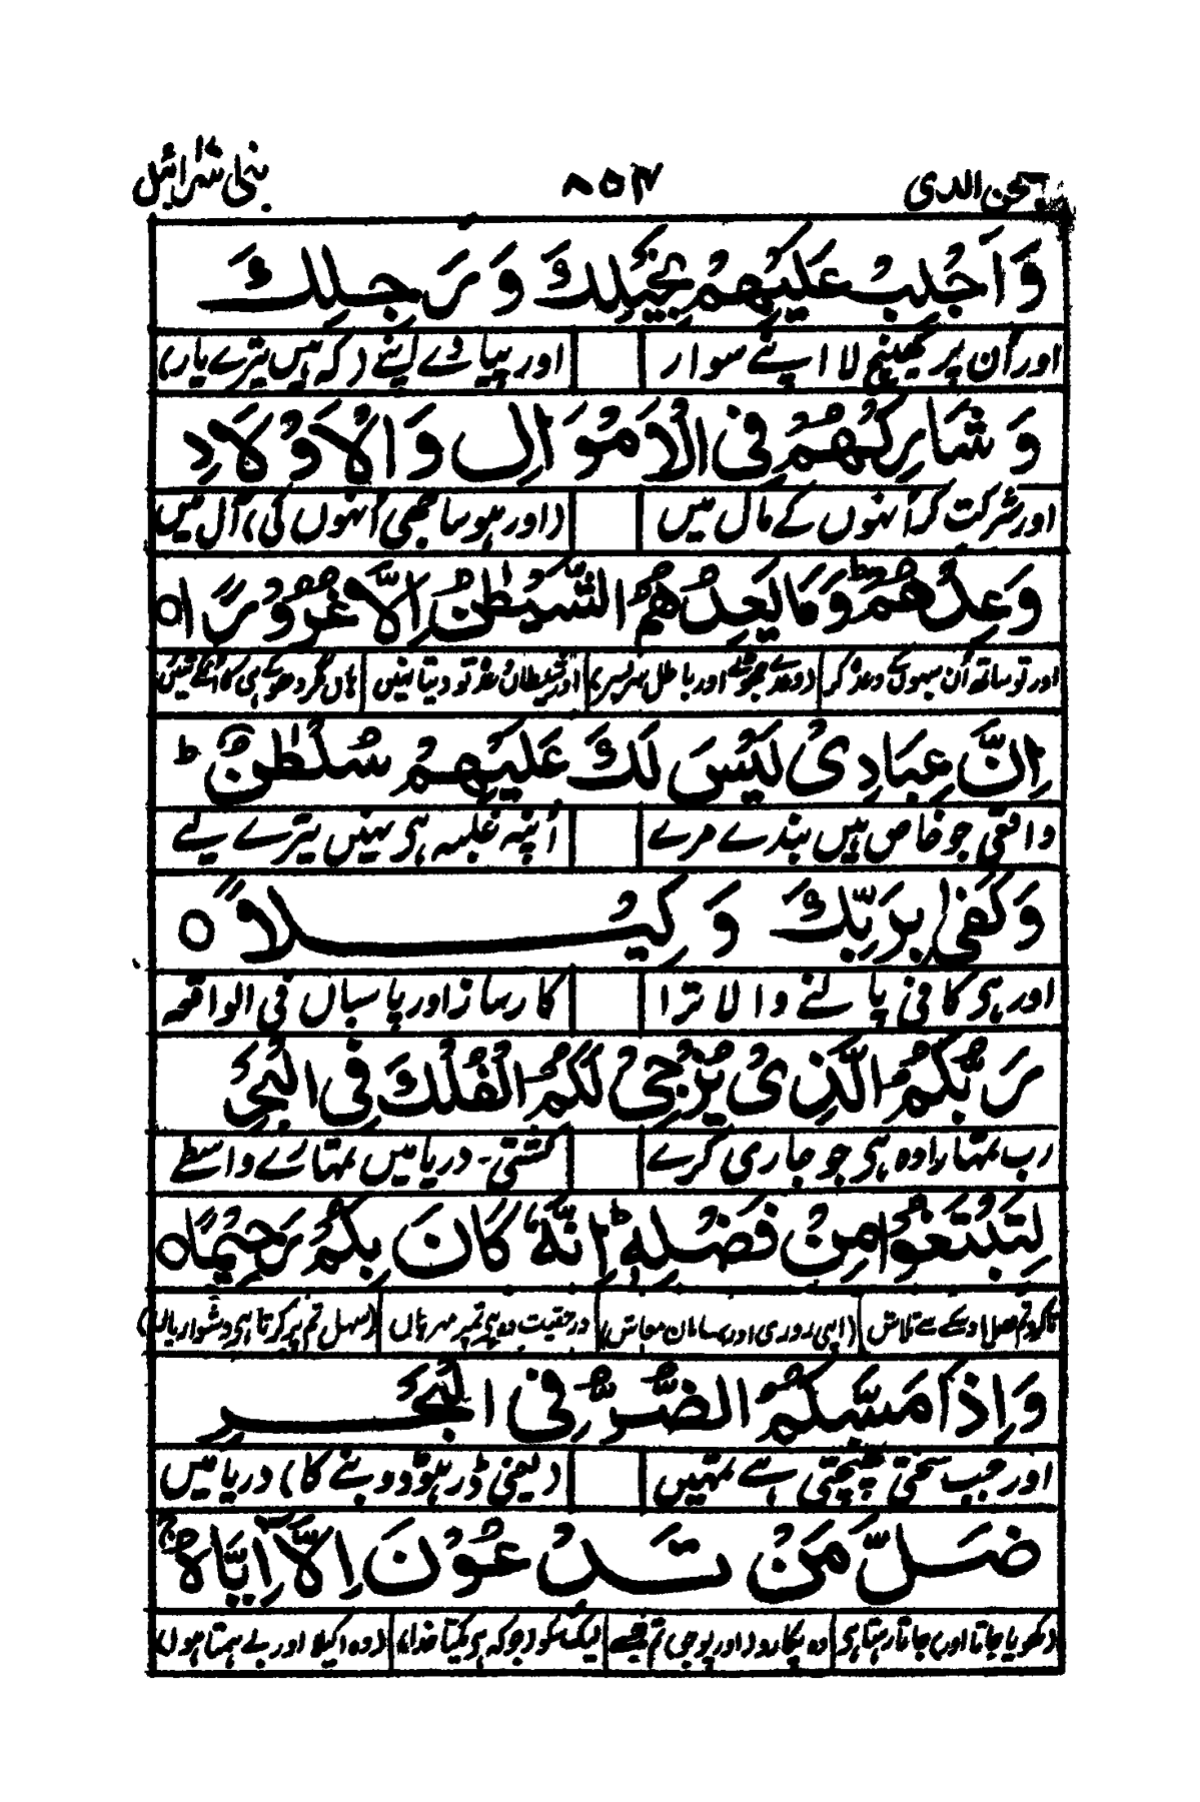 الذی ۸۵۴ بنی اسرائیل
وَاَجْلِبْ عَلَيْهِمْ بِخَيْلِكَ وَرَجِلِكَ
اور اُن پر کھینچ لا اپنے سوار اور پیادے اپنے (کہ ہیں تیرے یار)
وَشَارِكْهُمْ فِی الْاَمْوَالِ وَالْاَوْلَادِ
اور شرکت کر اُنہوں کے مال میں (اور ہو ساجھی اُنہوں کی) آل میں
وَعِدْهُمْ ؕ وَمَا يَعِدُهُمُ الشَّيْطٰنُ اِلَّا غُرُوْرًا ○
اور تو ساتھ اُن سبہوں کے وعدہ کر (وعدے جھوٹے اور باطل سربسر) اور شیطان وعدہ تو دیتا نہیں ہاں مگر دھوکے ہی کا
اِنَّ عِبَادِیْ لَيْسَ لَكَ عَلَيْهِمْ سُلْطٰنٌ ؕ
واقعی جو خاص ہیں بندے مرے اُنپہ غلبہ ہی نہیں تیرے لیے
وَكَفٰی بِرَبِّكَ وَكِيْلًا ○
اور ہی کافی پالنے والا ترا کارساز اور پاسباں فی الواقعہ
رَبُّكُمُ الَّذِیْ يُزْجِیْ لَكُمُ الْفُلْكَ فِی الْبَحْرِ
رب تمہارا وہ ہی جو جاری کرے کشتی۔ دریا میں تمہارے واسطے
لِتَبْتَغُوْا مِنْ فَضْلِهٖ ؕ اِنَّهٗ كَانَ بِكُمْ رَحِيْمًا ○
تاکہ تم فضل اوسکے سے تلاش (اپنی روزی اور سامان معاش) درحقیقت وہ ہی تمپر مہرباں (سہل تم پر کرتا ہی دشواریاں)
وَاِذَا مَسَّكُمُ الضُّرُّ فِی الْبَحْرِ
اور جب سختی پہنچتی ہے تمہیں (یعنی ڈر ہو ڈوبنے کا) دریا میں
ضَلَّ مَنْ تَدْعُوْنَ اِلَّاۤ اِيَّاهُ ۚ
(کھویا جاتا اور) جاتا رہتا ہی وہ پکارو (اور پوجو) تم جسے لیک سکو (جو کہ ہی یکتا خدا) (وہ اکیلا اور بے ہمتا ہوں)